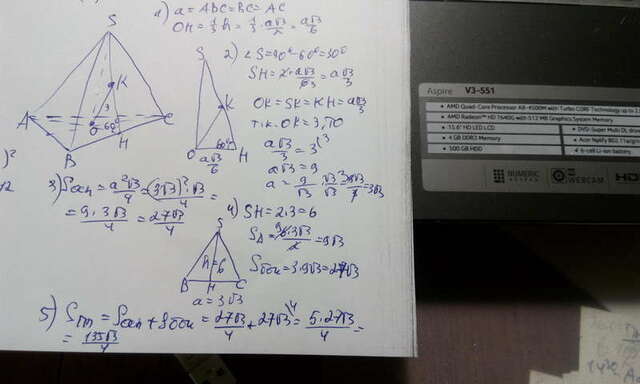 1) a = AB = BC = AC
OH = 1/3 h = 1/3 · a√3/2 = a√3/6
2) ∠S = 90° - 60° = 30°
SH = 2 · a√3/6 = a√3/3
OK = SK = KH = a√3/3
т.к. OK = 3, то
a√3/3 = 3
a√3 = 9
a = 9/√3 · √3/√3 = 9√3/3 = 3√3
3) Sосн = a²√3/4 = (3√3)²·√3/4 =
= 9·3√3/4 = 27√3/4
4) SH = 2·3 = 6
S△ = 6·3√3/2 = 9√3
Sбок = 3·9√3 = 27√3
5) Sпп = Sосн + Sбок = 27√3/4 + 27√3 = 5·27√3/4 =
= 135√3/4
S
K
3
A
O
60°
C
B
H
S
K
60°
O
H
a√3/6
S
h=6
B
H
C
a = 3√3
Aspire V3-551
AMD Quad-Core Processor A8-4500M with Turbo CORE Technology up to
AMD Radeon™ HD 7640G with 512 MB Graphics System Memory
15.6" HD LED LCD
DVD-Super Multi DL
4 GB DDR3 Memory
Acer Nplify 802.11
500 GB HDD
6-cell Li-ion battery
NUMERIC
KEYPAD
HD
WEBCAM
HD